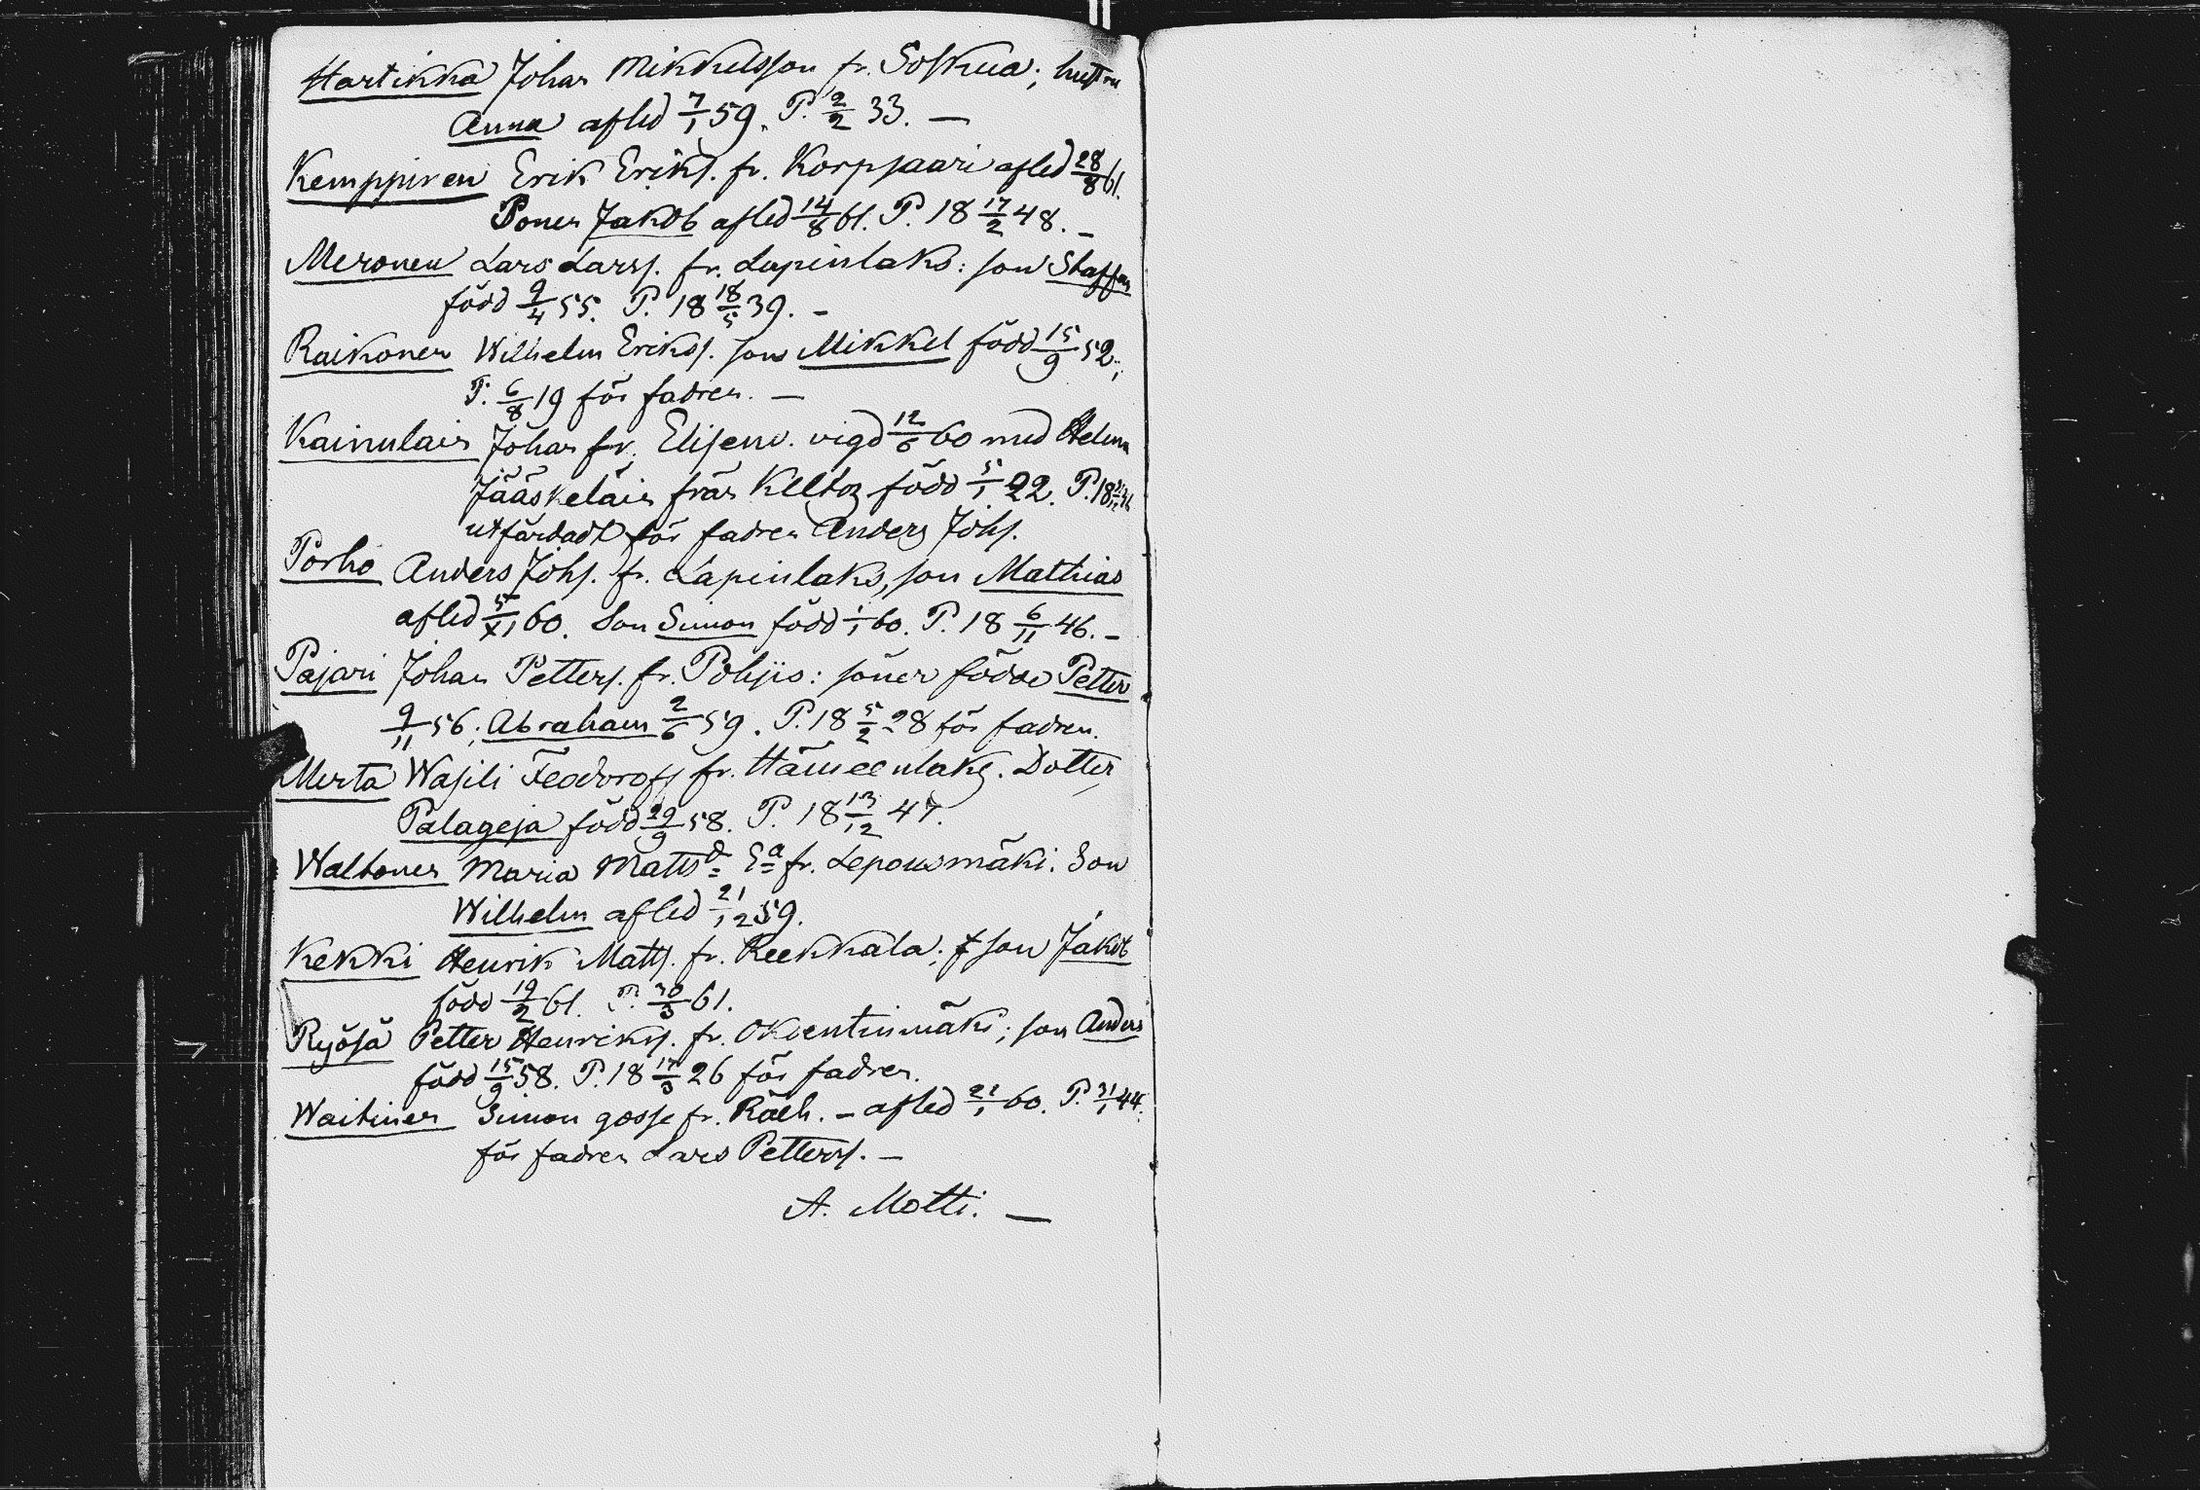 Hartikka Johan Mikkelsson fr. Soskua; hustru
Anna afled 7/1 59. P. 2/2 33. —
Kemppinen Erik Eriks. fr. Korpsaari afled 28/8 61.
Sonen Jakob afled 14/8 61. P. 18 17/2 48. –
Meronen Lars Larss. fr. Lapinlaks: son Staffan
född 9/4 55. P. 18 18/5 39. –
Raikonen Wilhelm Erikss. son Mikkel född 15/9 52;
P. 6/8 19 för fadren. —
Kainulain Johan fr. Elisenv. vigd 12/6 60 med Helena
Jääskeläin från Kelto, född 5/1 22. P. 18
utfärdadt för fadren Anders Johs.
Porho Anders Johs. fr. Lapinlaks, son Mathias
afled 5/XI 60. Son Simon född 1/1 60. P. 18 6/11 46. –
Pajari Johan Petters. fr. Pohjis: söner födde Petter
9/11 56; Abraham 2/6 59. P. 18 5/2 28 för fadren.
Merta Wasili Feodoroff fr. Hämeenlaks. Dotter
Palageja född 29/9 58. P. 18 13/12 47.
Waltonen Maria Mattsd. Ea fr. Leponmäki. Son
Wilhelm afled 21/12 59.
Kekki Henrik Matts. fr. Reekkala; son Jakob
född 19/2 61. P. 30/3 61.
Ryösä Petter Henrikss. fr. Okventinmäki; son Anders
född 15/9 58. P. 18 17/3 26 för fadren.
Waitinen Simon gosse fr. Räih. – afled 21/1 60. P. 31/1 44.
för fadren Lars Petterss. –
A. Motti. —